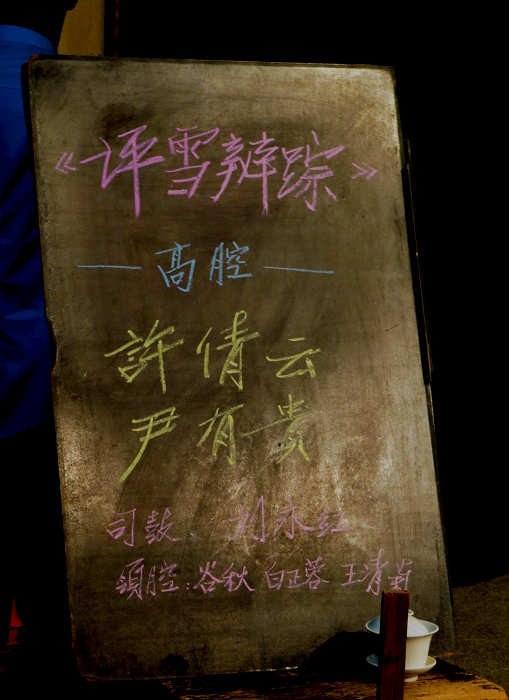 《评雪辨踪》
—高腔—
許倩云
尹有贵
司鼓、刘永红
領腔:谷秋 白正蓉 王清